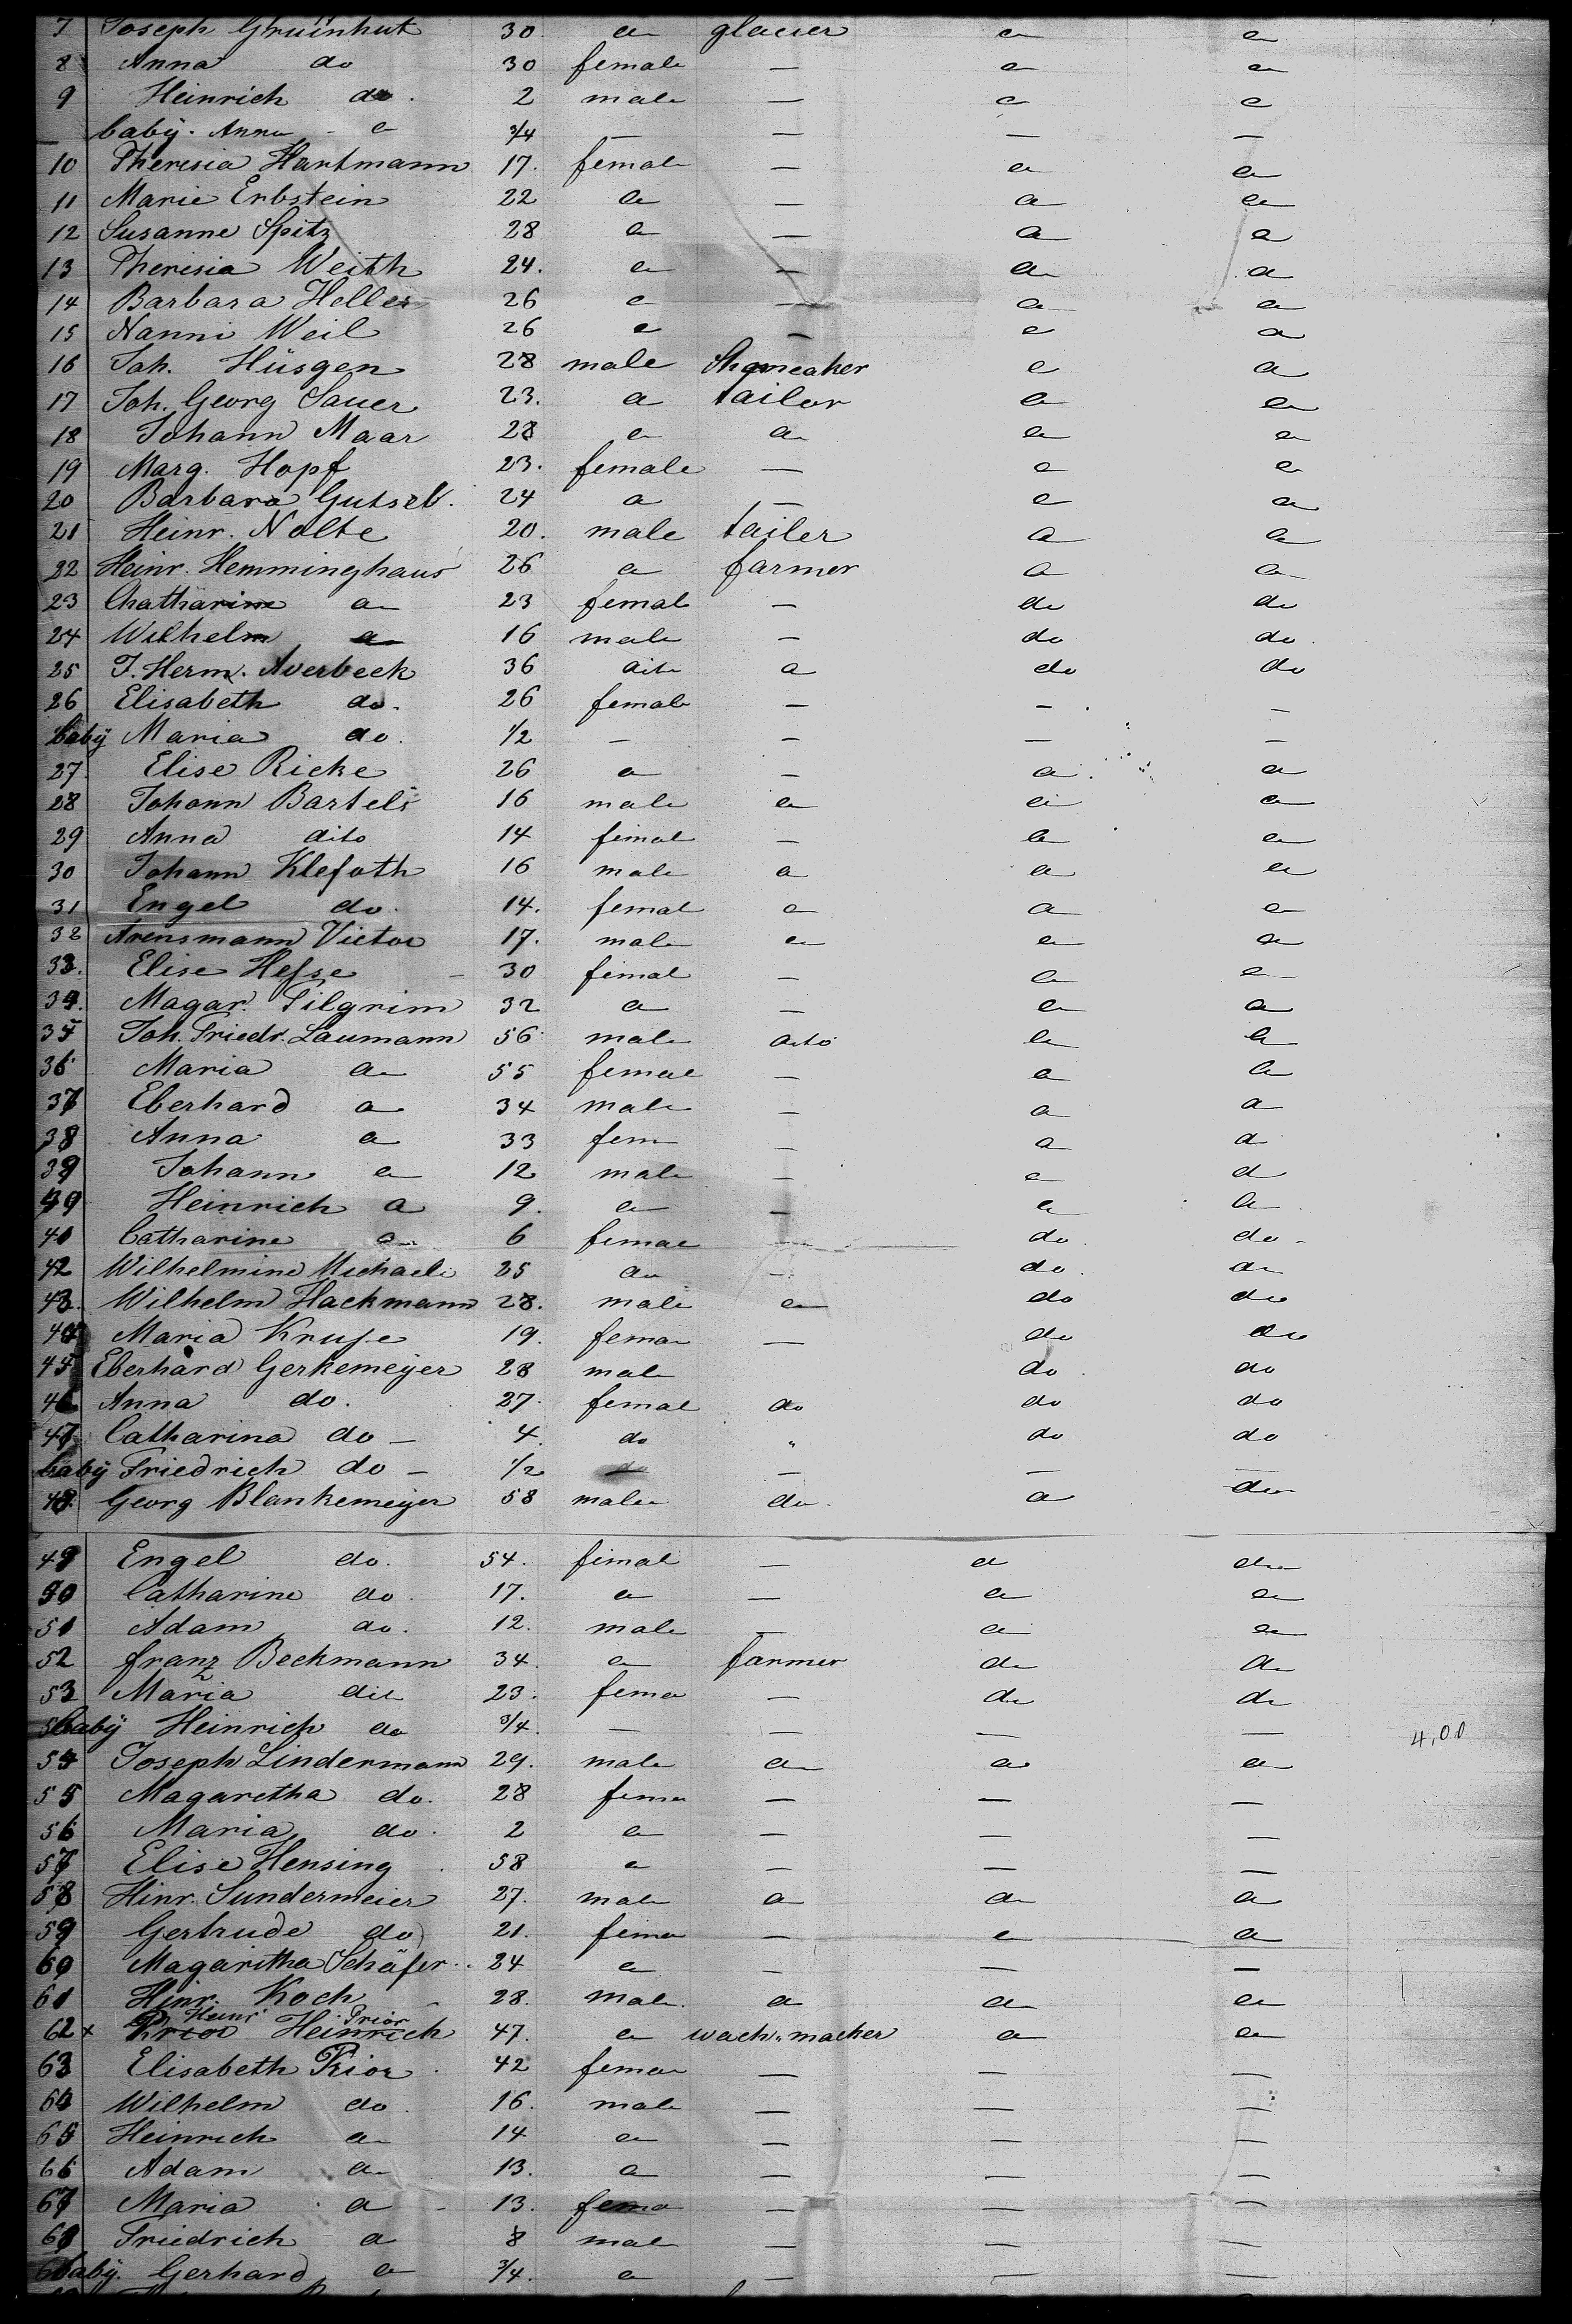 7 Joseph Gruünhut 30 a glacier a a
8 Anna do 30 female — a a
9 Heinrich do. 2 male — a a
baby. Anna - a 3/4 — — — —
10 Theresia Hartmann 17. female — a a
11 Marie Erbstein 22 a — a a
12 Susanne Spitz 28 a — a a
13 Theresia Weith 24. a — a a
14 Barbara Heller 26 a — a a
15 Nanni Weil 26 a — a a
16 Joh. Hüsgen 28 male a a
17 Joh. Georg Sauer 23. a tailor a a
18 Johann Maar 28 a a a a
19 Marg. Hopf 23. female — a a
20 Barbara Gutseb. 24 a — a a
21 Heinr. Nolte 20. male tailer a a
22 Heinr. Hemminghaus 26 a farmer a a
23 Chatharine a 23 femal — do do
24 Wilhelm a 16 male — do do.
25 J. Herm. Averbeck 36 dito a do do
26 Elisabeth do. 26 female — — —
baby Maria do. 1/2 — — — —
27. Elise Ricke 26 a — a a
28 Johann Bartels 16 male a a a
29 Anna dito 14 fimal — a a
30 Johann Klefoth 16 male a a a
31 Engel do. 14. femal a a a
32 Arensmann Victor 17. male a a a
33. Elise Hesse - 30 fimal — a a
34. Magar. Pilgrim 32 a — a a
35 Joh. Friedr. Laumann 56 male dito a a
36 Maria a 55 femal — a a
37 Eberhard a 34 male — a a
38 Anna a 33 fem — a a
39 Johann a 12 male — a a
40 Heinrich a 9. a — a a
41 Catharine a 6 femae — do do -
42 Wilhelmine Michaeli 25 do — do. do
43. Wilhelm Hackmann 28. male a do do
44 Maria Kruse 19. fema — do do
45 Eberhard Gerkemeyer 28 male do. do
46 Anna do. 27. femal do do do
47 Catharina do — 4. do " do do
baby Friedrich do — 1/2 do — — —
48. Georg Blankemeyer 58 male do. a do
49 Engel do. 54. fimal — a do
50 Catharine do. 17. a — a a
51 Adam do. 12. male — a a
52 franz Beckmann 34. a farmer do do
53 Maria dito 23. fema — do do
baby Heinrich do 3/4. — — — — 4,00
54 Joseph Lindermann 29. male a a a
55 Magaretha do. 28 fema — — —
56 Maria do. 2 a — — —
57 Elise Hensing . 58 a — — —
58 Hinr. Sundermeier 27. male a a a
59 Gertrude do 21. fima — a a
60 Magaritha Schäfer .. 24 a — — —
61 Hinr. Koch 28. male. a a a
Heinr Prior
62 x Prior Heinrich 47. a wach. macher a a
63 Elisabeth Prior . 42 fema — — —
64 Wilhelm do. 16. male — — —
65 Heinrich a 14 a — — —
66 Adam a 13. a — — —
67 Maria a - 13. fema — — —
68 Friedrich a 8 mal — — —
baby. Gerhard a 3/4. a — — —